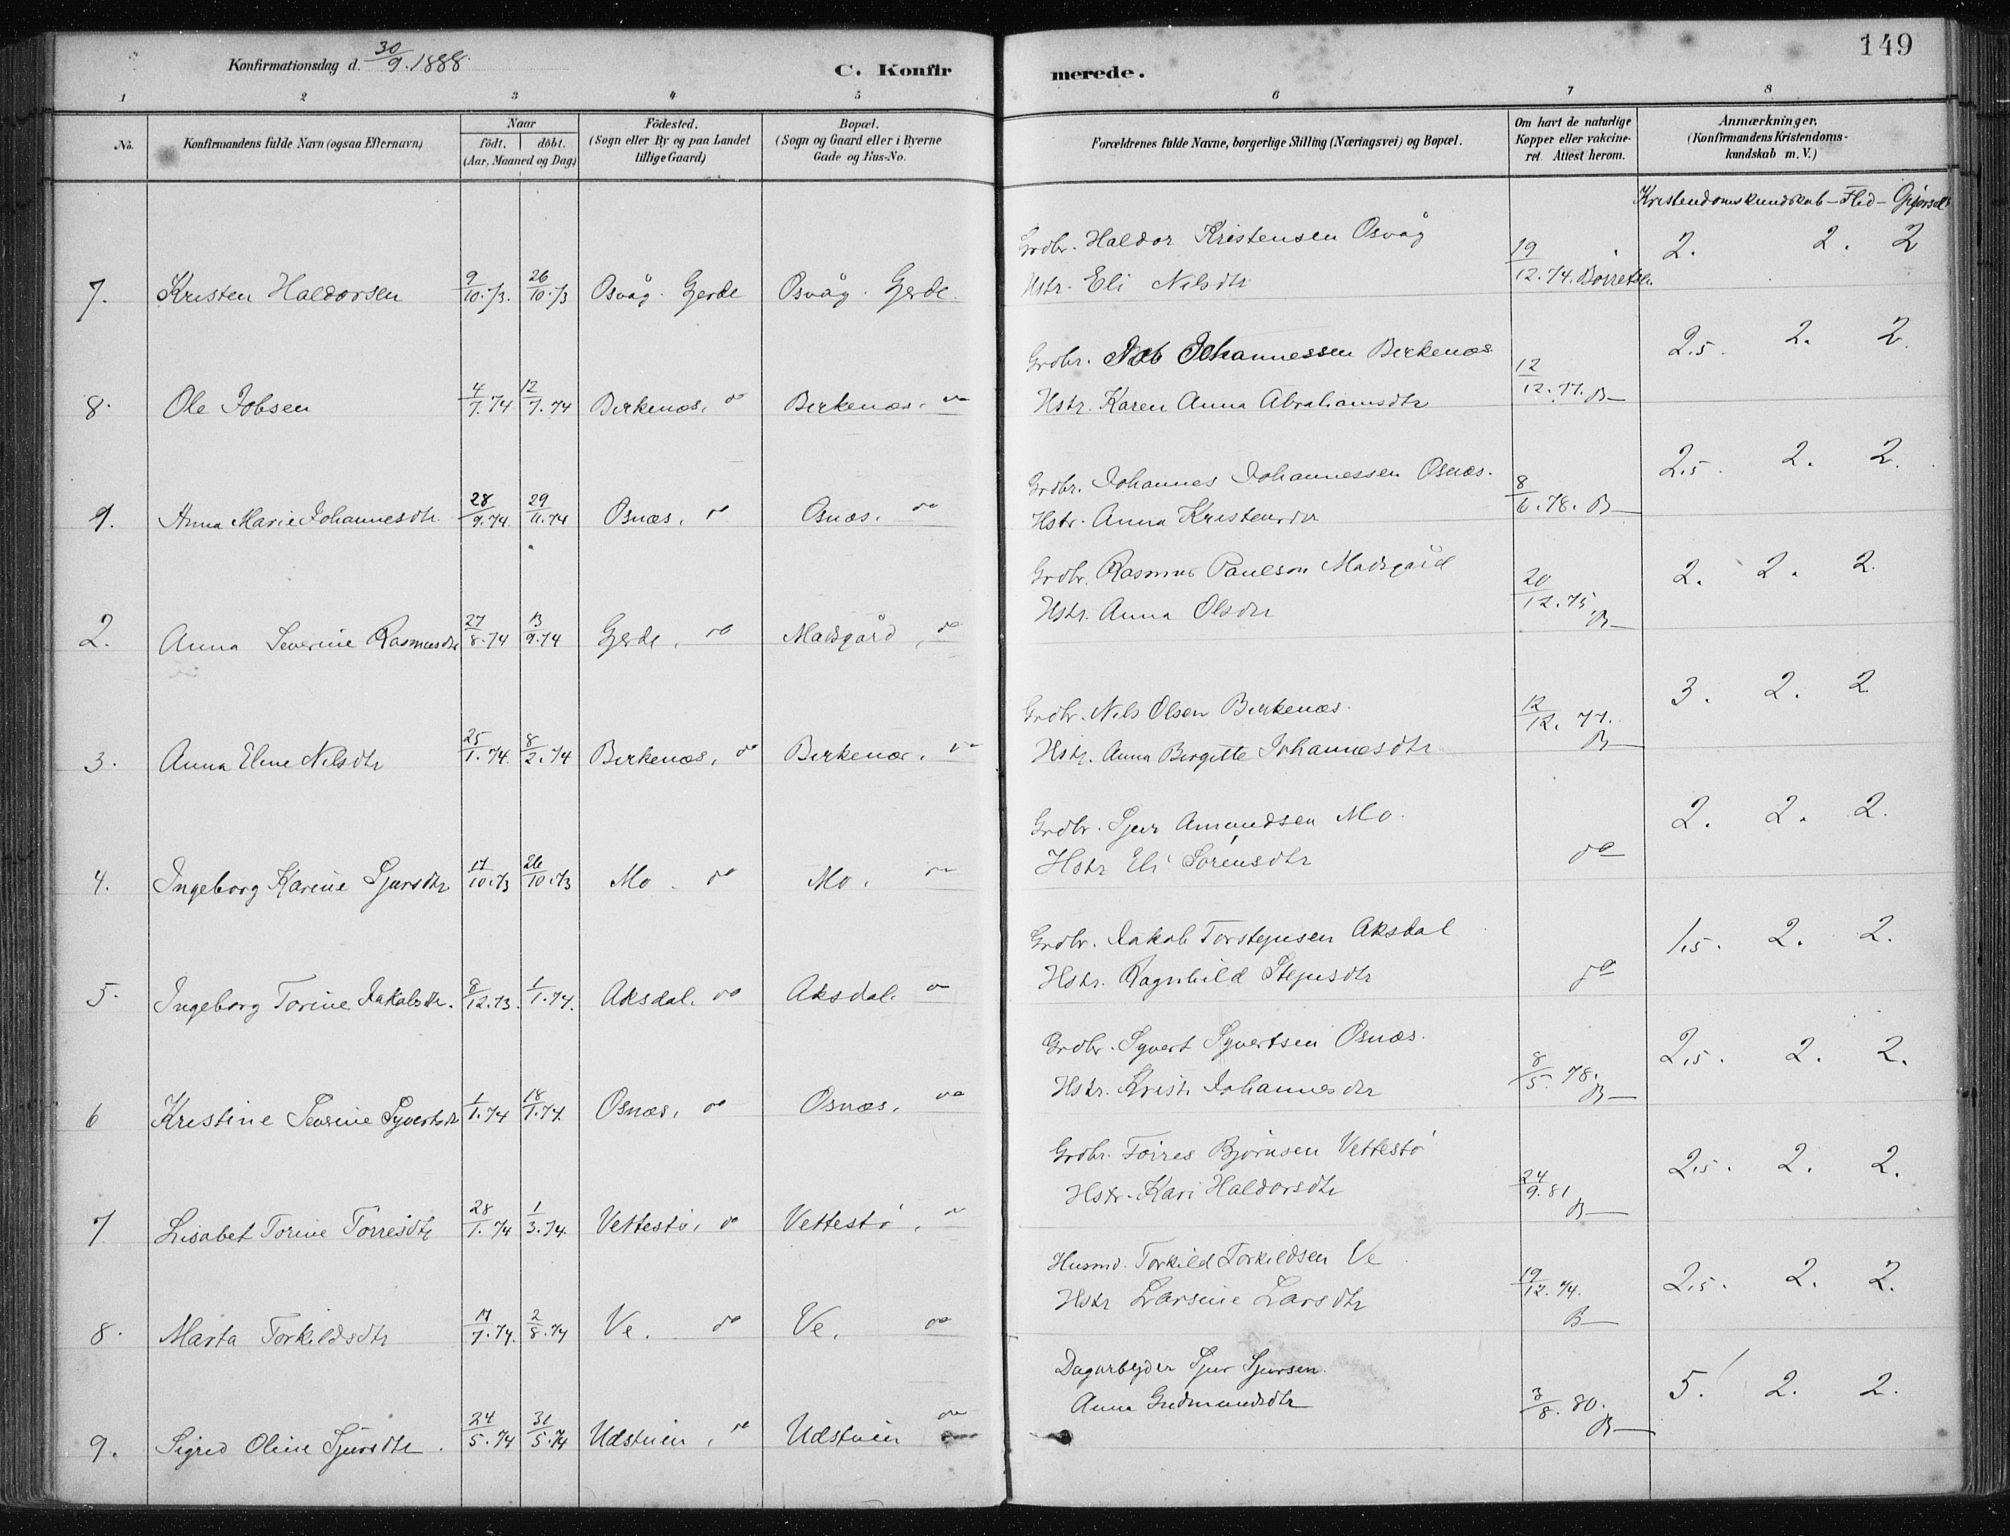 Konfirmationsdag d. 30/9. 1888.
C. Konfirmerede.
149
1 2 3 4 5 6 7 8
No.
Konfirmandens fulde Navn (ogsaa Efternavn)
Naar födt. döbt. (Aar, Maaned og Dag)
Födested. (Sogn eller By og paa Landet tillige Gaard)
Bopæl. (Sogn og Gaard eller i Byerne Gade og Hus-No.
Forældrenes fulde Navne, borgerlige Stilling (Næringsvei) og Bopæl.
Om havt de naturlige Kopper eller vakcineret. Attest herom.
Anmærkninger. (Konfirmandens Kristendomskundskab m. V.)
Kristendomskundskab - Flid -
Grdbr. Haldor Kristensen Osvåg
7. Kristen Haldorsen 9/10.73. 26/10.73 Osvåg. Gerde Osvåg. Gerde. Hstr. Eli Nilsdtr 19/12.74. 2. 2. 2
Grdbr. Job Johannessen Birkenæs
8. Ole Jobsen 4/7.74 12/7.74 Birkenæs, do Birkenæs. do Hstr. Karen Anna Abrahamsdtr 12/12.77. B— 2,5. 2. 2.
Grdbr. Johannes Johannessen Osnæs.
1. Anna Marie Johannesdtr. 28/9.74 29/11.74 Osnæs, do Osnæs. do Hstr. Anna Kristensdtr 8/6.78. B— 2,5. 2. 2.
Grdbr. Rasmus Paulson Madsgård
2. Anna Severine Rasmusdtr 27/8.74 13/9.74 Gerde, do Madsgård, do Hstr. Anna Olsdtr 20/12.75. B— 2. 2. 2.
Grdbr. Nils Olsen Birkenæs.
3. Anna Eline Nilsdtr 25/1.74. 8/2.74 Birkenæs, do Birkenæs, do Hstr. Anna Birgitte Johannesdtr 12/12.77. B— 3. 2. 2
Grdbr. Sjur Amundsen Mo.
4. Ingeborg Karine Sjursdtr 17/10.73 26/10.73 Mo. do Mo. do Hstr Eli Sørensdtr do 2. 2. 2.
Grdbr. Jakob Torstensen Aksdal
5. Ingeborg Torine Jakobsdtr. 8/12.73. 1/1.74. Aksdal. do Aksdal. do Hstr. Ragnhild do 1,5. 2. 2.
Grdbr. Syvert Syvertsen Osnæs.
6 Kristine Severine Syvertsdtr 1/1.74 18/1.74. Osnæs, do Osnæs, do Hstr. Krist. Johannesdtr 8/5.78. B— 2,5. 2. 2.
Grdbr. Tørres Bjørnsen Vettestø
7 Lisabet Torine Tørresdtr 28/1.74 1/3.74. Vettestø, do Vettestø, do Hstr. Kari Haldorsdtr 24/9.81 B— 2,5. 2. 2.
Husmd. Torkild Torkildsen Ve
8. Marta Torkildsdtr 17/7.74. 2/8.74 Ve. do Ve. do Hstr Larsine Larsdtr 19/12.74. B— 2,5. 2. 2.
Dagarbeider Sjur Sjursen.
9. Sigred Oline Sjursdtr. 24/5.74 31/5.74 Udstuien, do Udstuien do Anna Gudmundsdtr 3/8.80. B— 5.! 2. 2.